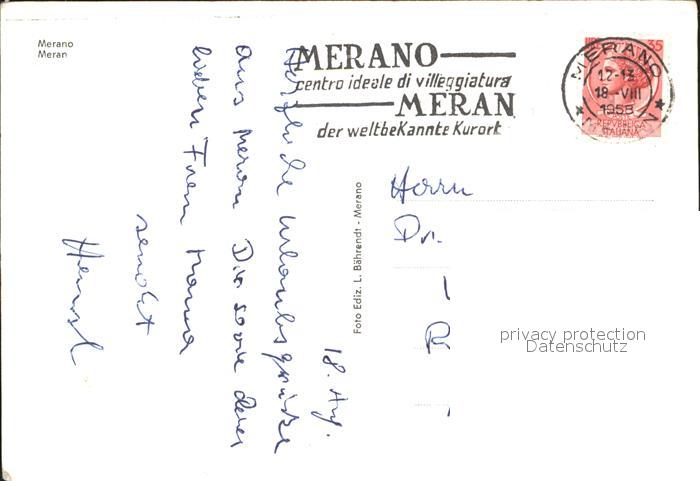 Merano
Meran
MERANO
centro ideale di villeggiatura
MERAN
der weltbekannte Kurort
MERANO
12-13
18-VIII
1958
35
REPVBBLICA
ITALIANA
18. Aug.
Herzliche Urlaubsgrüße
aus Meran Dir sowie deiner
lieben Frau Mama
sendet
Foto Ediz. L. Bährendt - Merano
Herrn
Dr.
privacy protection
Datenschutz